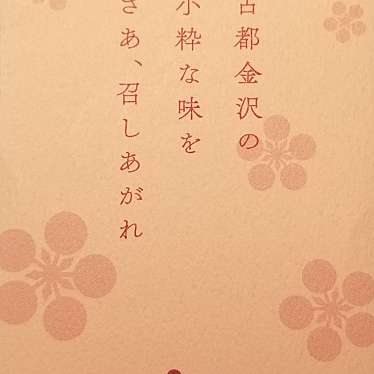 古都金沢の
小粋な味を
さあ、召しあがれ